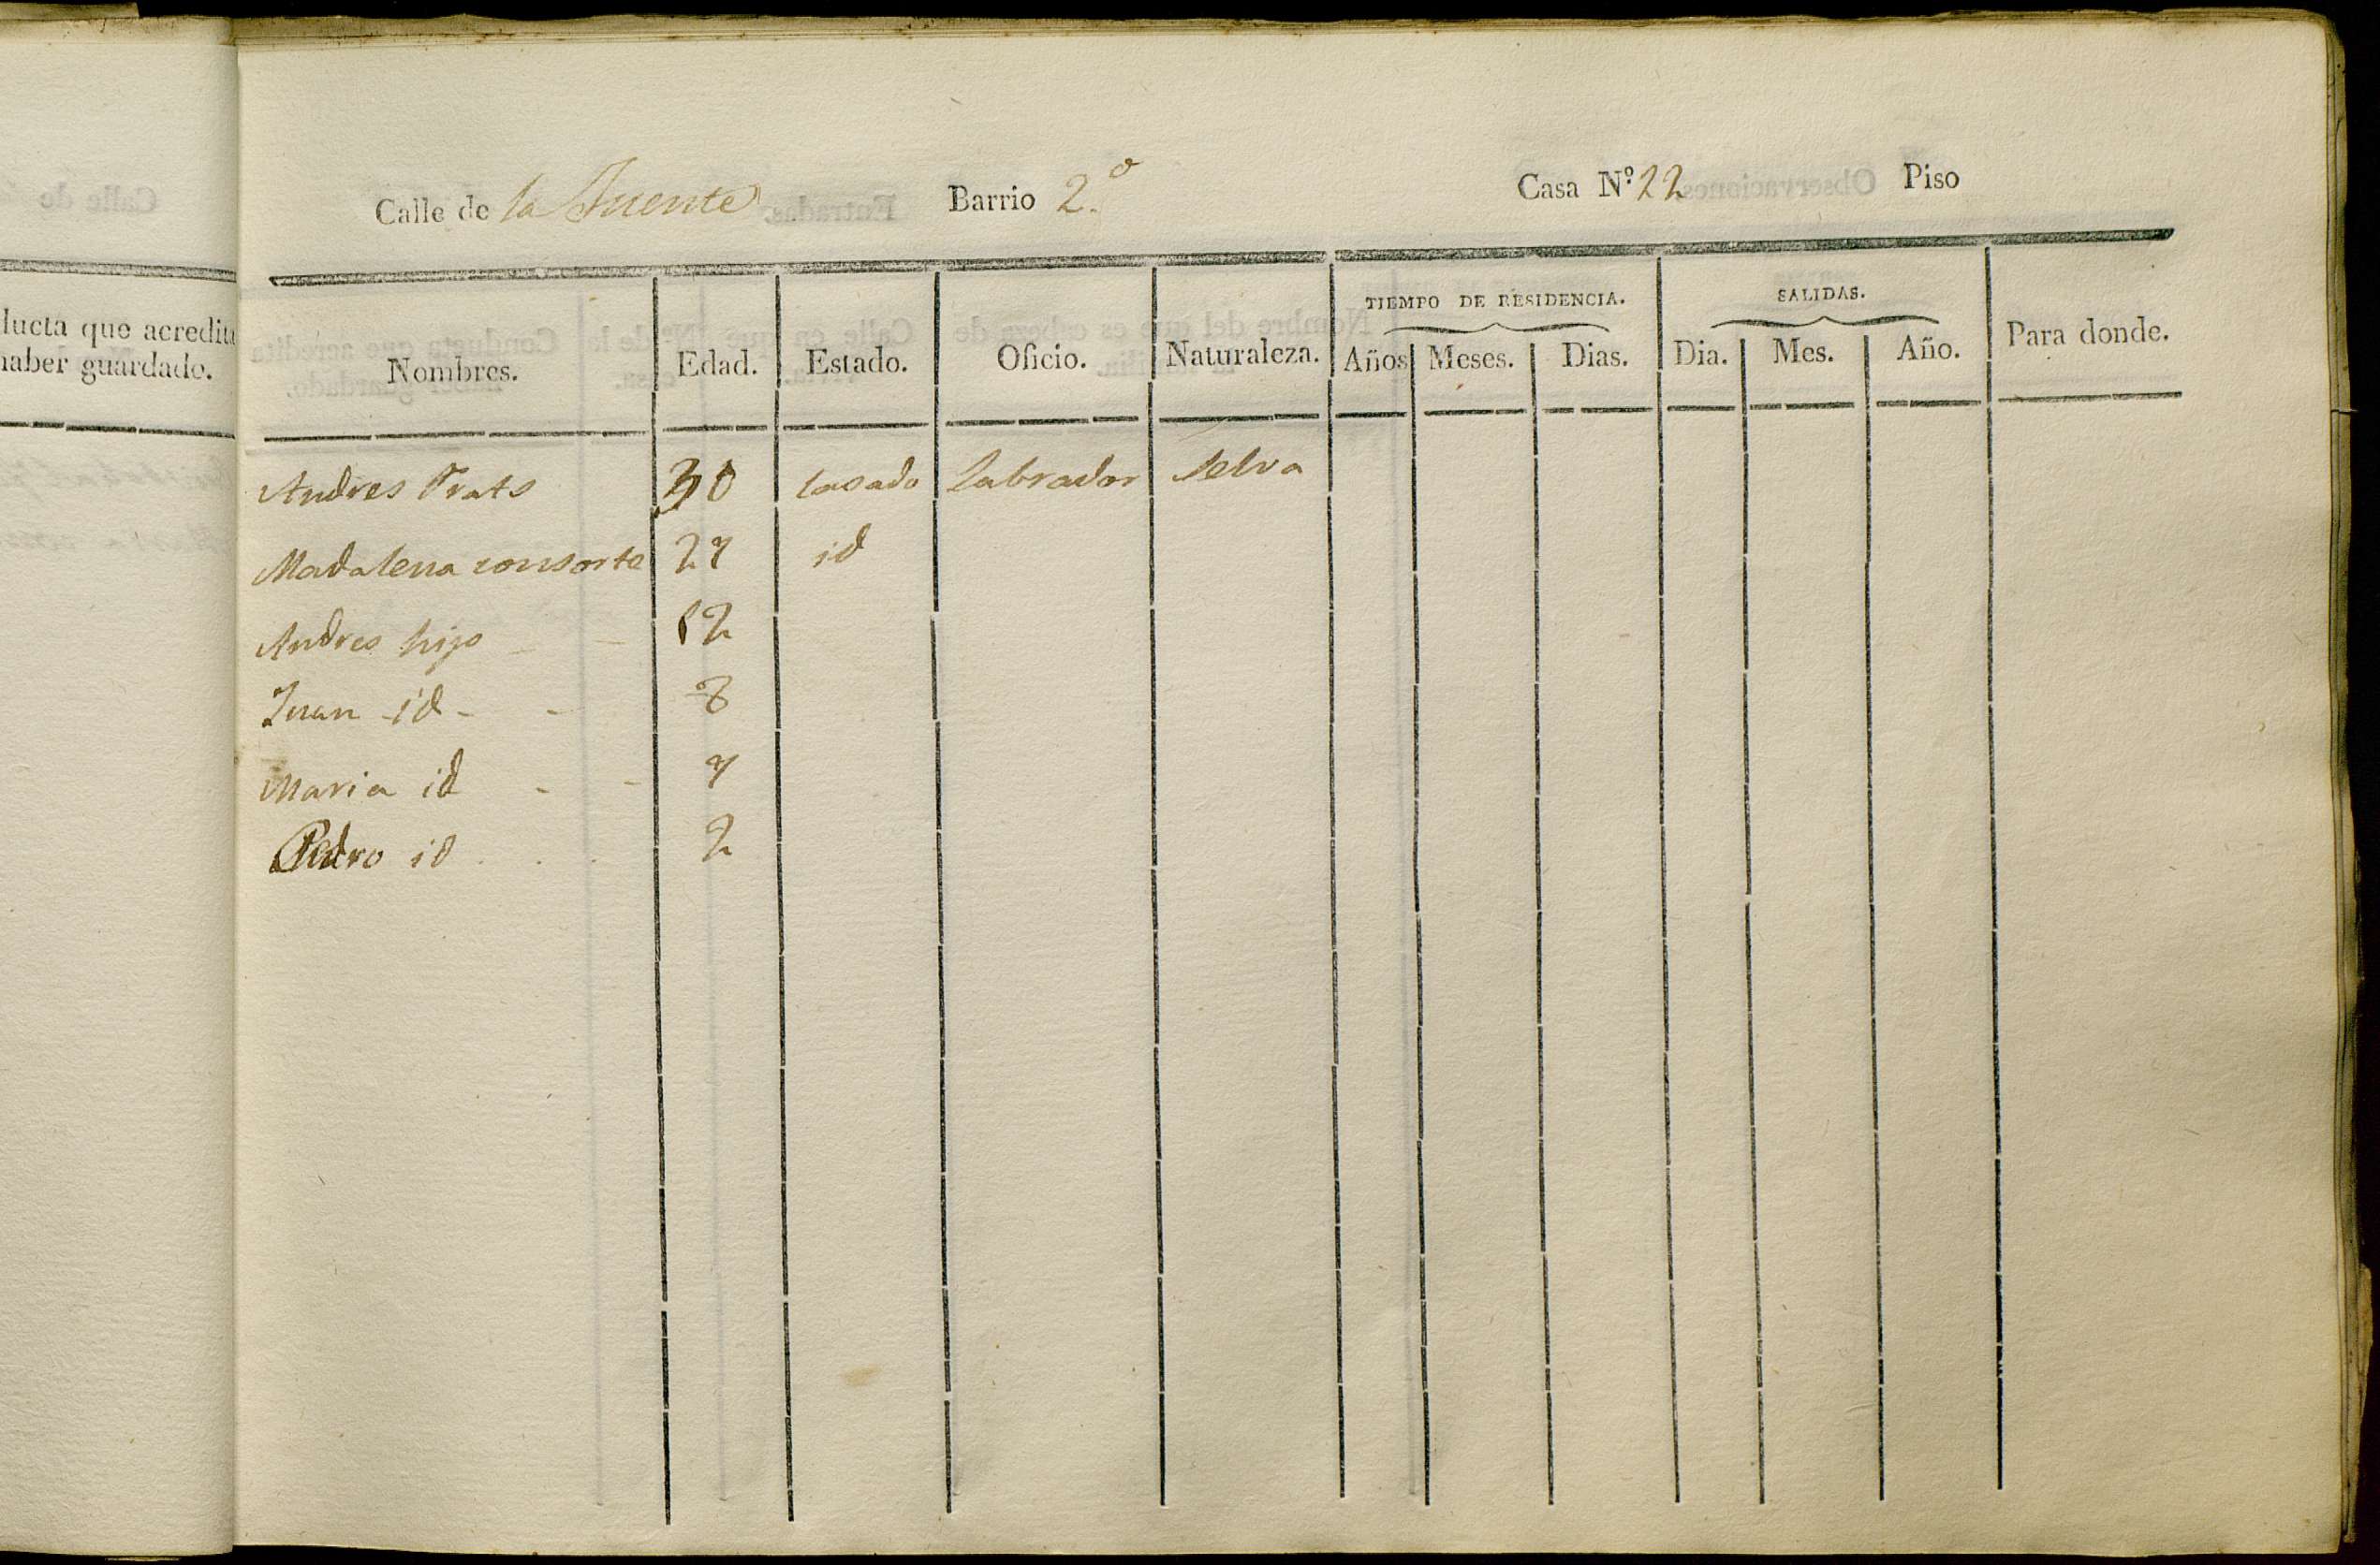 lucta que acredita
haber guardado.
Calle de la Fuente Barrio 2.º Casa Nº 22 Piso
TIEMPO DE RESIDENCIA. SALIDAS.
Nombres. Edad. Estado. Oficio. Naturaleza. Años Meses. Dias. Dia. Mes. Año. Para donde.
Andres Prats 30 casado Labrador Selva
Madalena consorte 27 id
Andres hijo 12
Juan id 8
Maria id 7
Pedro id 2